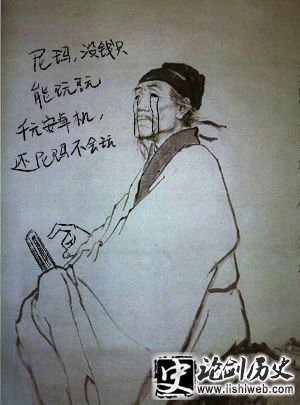 尼玛，没钱只
能玩玩
千元安卓机，
还尼玛不会玩
史 论剑历史
www.lishiweb.com